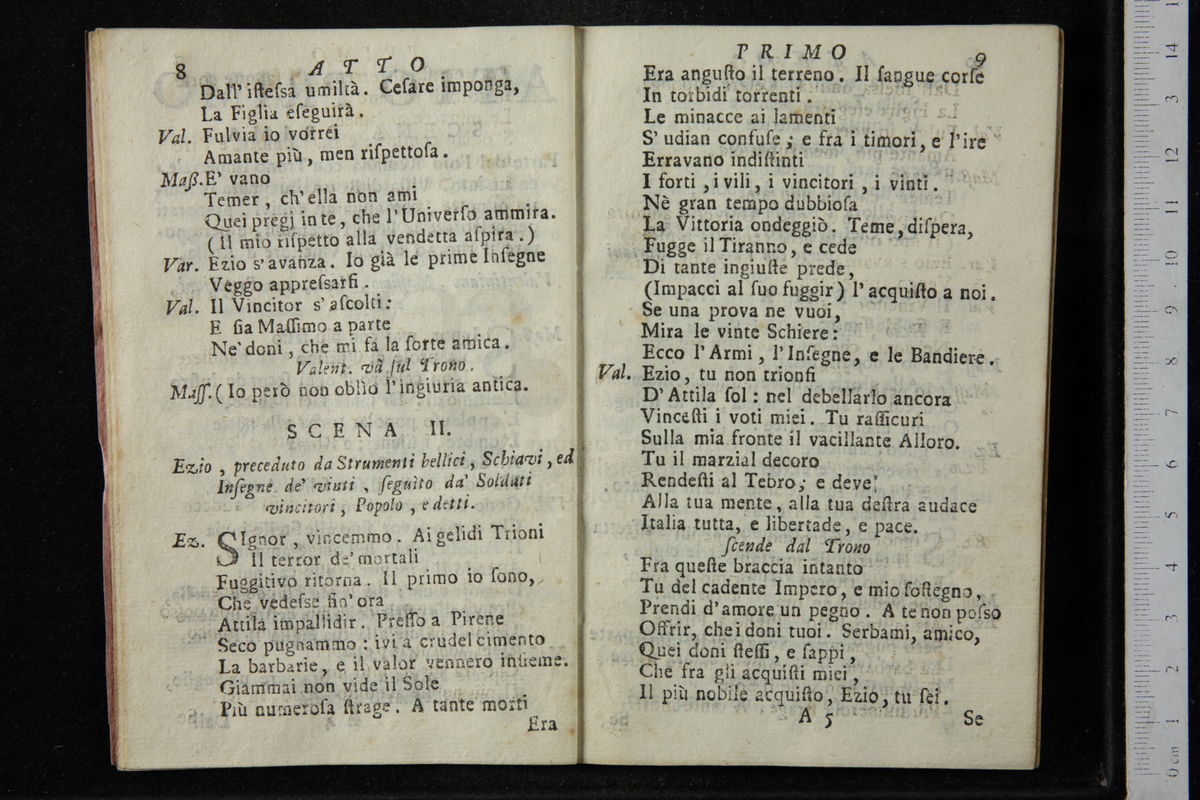 8 ATTO
Dall' iſteſsa umiltà. Ceſare imponga,
La Figlia eſeguirà.
Val. Fulvia io vorrei
Amante più, men riſpettoſa.
Maß. E' vano
Temer, ch'ella non ami
Quei pregj in te, che l'Univerſo ammira.
(Il mio riſpetto alla vendetta aſpira.)
Var. Ezio s'avanza. Io già le prime Inſegne
Veggo appreſsarſi.
Val. Il Vincitor s'aſcolti:
E ſia Maſſimo a parte
Ne' doni, che mi fà la ſorte amica.
Valent. và ſul Trono.
Maſſ. (Io però non oblìo l'ingiuria antica.
SCENA II.
Ezio, preceduto da Strumenti bellici, Schiavi, ed
Inſegne de' vinti, ſeguito da' Soldati
vincitori, Popolo, e detti.
Ez. SIgnor, vincemmo. Ai gelidi Trioni
Il terror de' mortali
Fuggitivo ritorna. Il primo io ſono,
Che vedeſse fin' ora
Attila impallidir. Preſſo a Pirene
Seco pugnammo: ivi a crudel cimento
La barbarie, e il valor vennero inſieme.
Giammai non vide il Sole
Più numeroſa ſtrage. A tante morti
Era
PRIMO 9
Era anguſto il terreno. Il ſangue corſe
In torbidi torrenti.
Le minacce ai lamenti
S' udian confuſe; e fra i timori, e l'ire
Erravano indiſtinti
I forti, i vili, i vincitori, i vinti.
Nè gran tempo dubbioſa
La Vittoria ondeggiò. Teme, diſpera,
Fugge il Tiranno, e cede
Di tante ingiuſte prede,
(Impacci al ſuo fuggir) l'acquiſto a noi.
Se una prova ne vuoi,
Mira le vinte Schiere:
Ecco l'Armi, l'Inſegne, e le Bandiere.
Val. Ezio, tu non trionfi
D'Attila ſol: nel debellarlo ancora
Vinceſti i voti miei. Tu raſſicuri
Sulla mia fronte il vacillante Alloro.
Tu il marzial decoro
Rendeſti al Tebro; e deve
Alla tua mente, alla tua deſtra audace
Italia tutta, e libertade, e pace.
ſcende dal Trono
Fra queſte braccia intanto
Tu del cadente Impero, e mio ſoſtegno,
Prendi d'amore un pegno. A te non poſso
Offrir, che i doni tuoi. Serbami, amico,
Quei doni ſteſſi, e ſappi,
Che fra gli acquiſti miei,
Il più nobile acquiſto, Ezio, tu ſei.
A 5 Se
0 cm 1 2 3 4 5 6 7 8 9 10 11 12 3 14